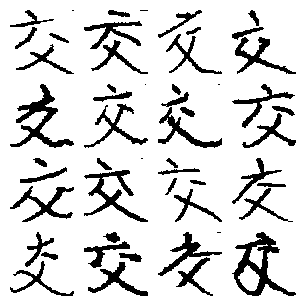 交交交交
交交交交
交交交交
交交交交